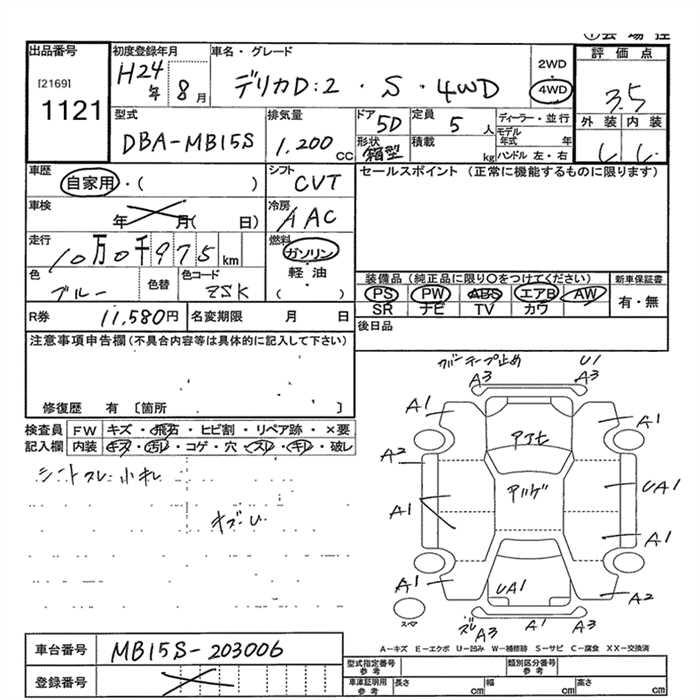 出品番号
[2169]
1121
初度登録年月
H24年 8月
車名・グレード
デリカD:2 ・ S ・ 4WD
2WD
4WD
評価点
3.5
外装 内装
型式
DBA-MB15S
排気量
1,200 CC
ドア
5D
形状
箱型
定員
5 人
積載
kg
ディーラー・並行
モデル年式 年
ハンドル 左・右
車歴
自家用・( )
シフト
CVT
セールスポイント (正常に機能するものに限ります)
車検
年 月( 日)
冷房
AAC
走行
10万0千975km
燃料
ガソリン
軽・油
( )
色
ブルー
色替
色コード
ZSK
装備品 (純正品に限り○をつけてください)
新車保証書
PS PW ABS エアB AW
有・無
SR ナビ TV カワ
R券
11,580円
名変期限 月 日
後日品
注意事項申告欄(不具合内容等は具体的に記入して下さい)
修復歴 有 〔箇所 〕
検査員記入欄
FW キズ・飛石・ヒビ割・リペア跡・×要
内装 キズ・汚レ・コゲ・穴・スレ・キレ・破レ
カバーテープ止め
U1
A3 A3
A1 A1
A2
UA1
A1 A1
A1 UA1 A2
A3 A1 A3
A−キズ E−エクボ U−凹み W−補修跡 S−サビ C−腐食 XX−交換済
車台番号
MB15S-203006
登録番号
型式指定番号
参考
類別区分番号
参考
車庫証明用
参考
長さ cm 幅 cm 高さ cm